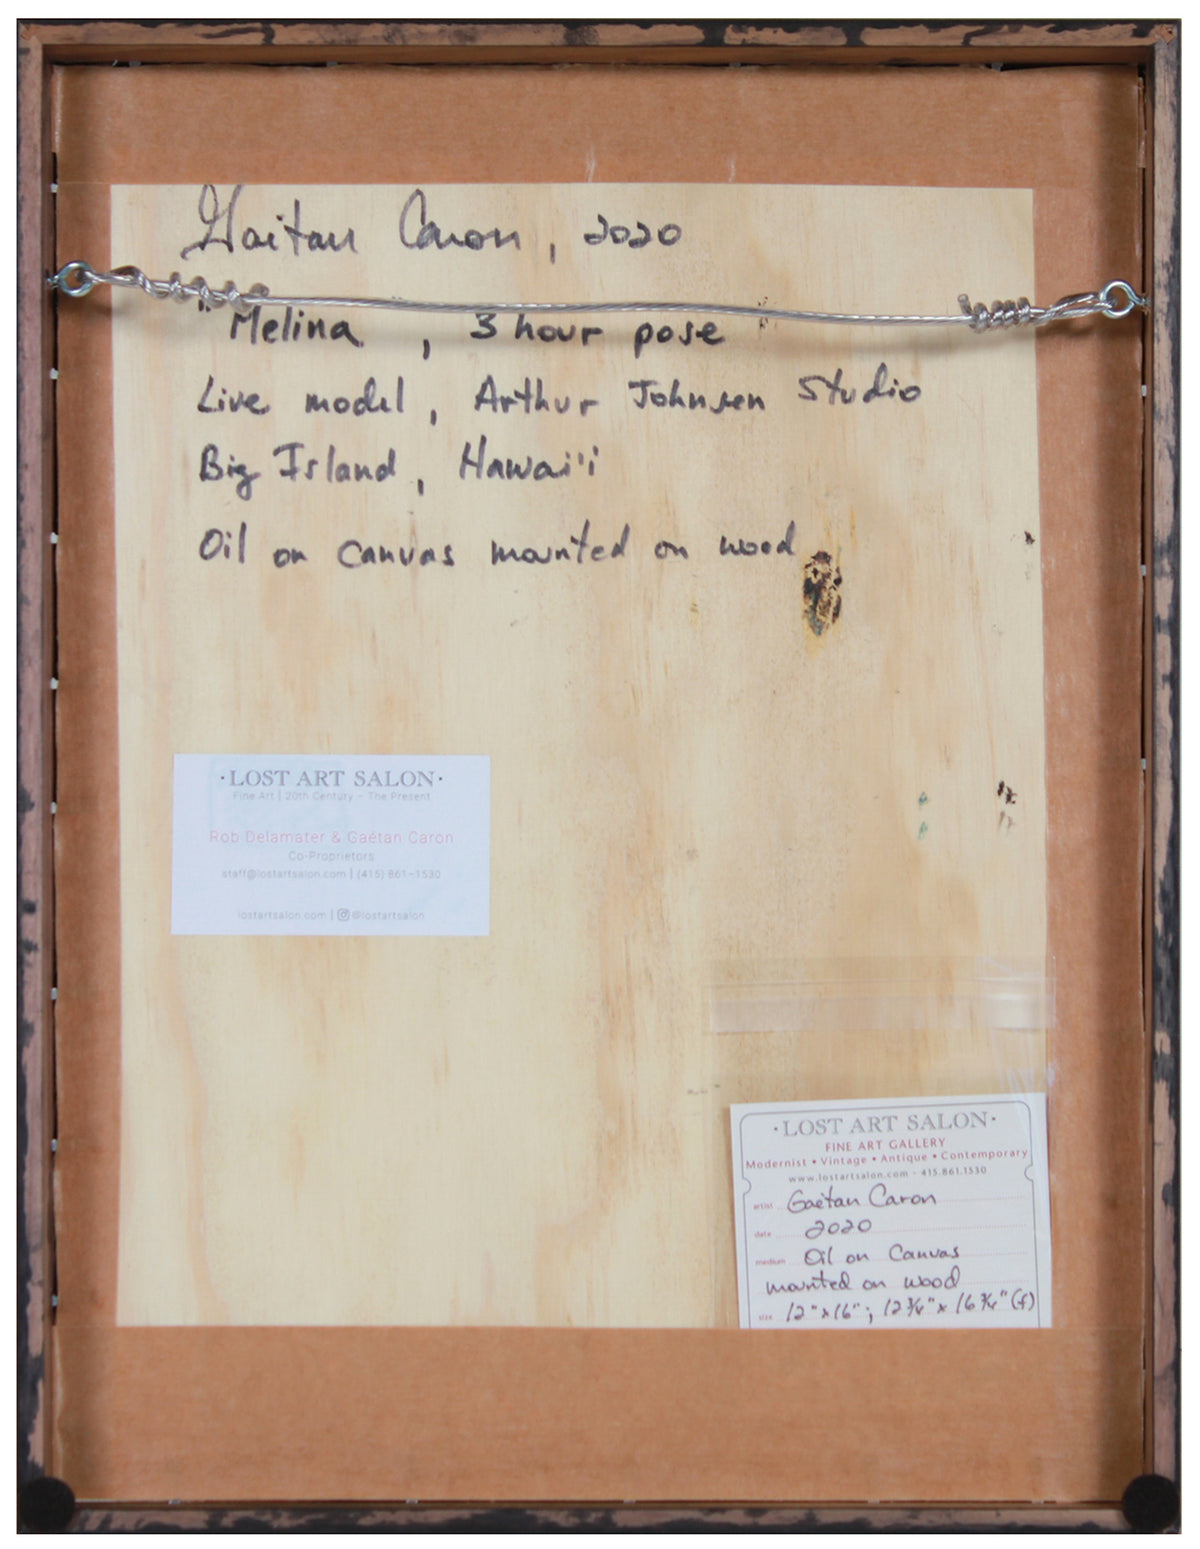 Gaétan Caron, 2020
"Melina, 3 hour pose"
Live model, Arthur Johnsen Studio
Big Island, Hawai'i
Oil on canvas mounted on wood
·LOST ART SALON·
Fine Art | 20th Century – The Present
Rob Delamater & Gaétan Caron
Co-Proprietors
staff@lostartsalon.com | (415) 861-1530
lostartsalon.com | @lostartsalon
·LOST ART SALON·
FINE ART GALLERY
Modernist • Vintage • Antique • Contemporary
www.lostartsalon.com - 415.861.1530
artist Gaétan Caron
date 2020
medium Oil on Canvas
mounted on wood
size 12"x16"; 12 3/4" x 16 3/4" (f)